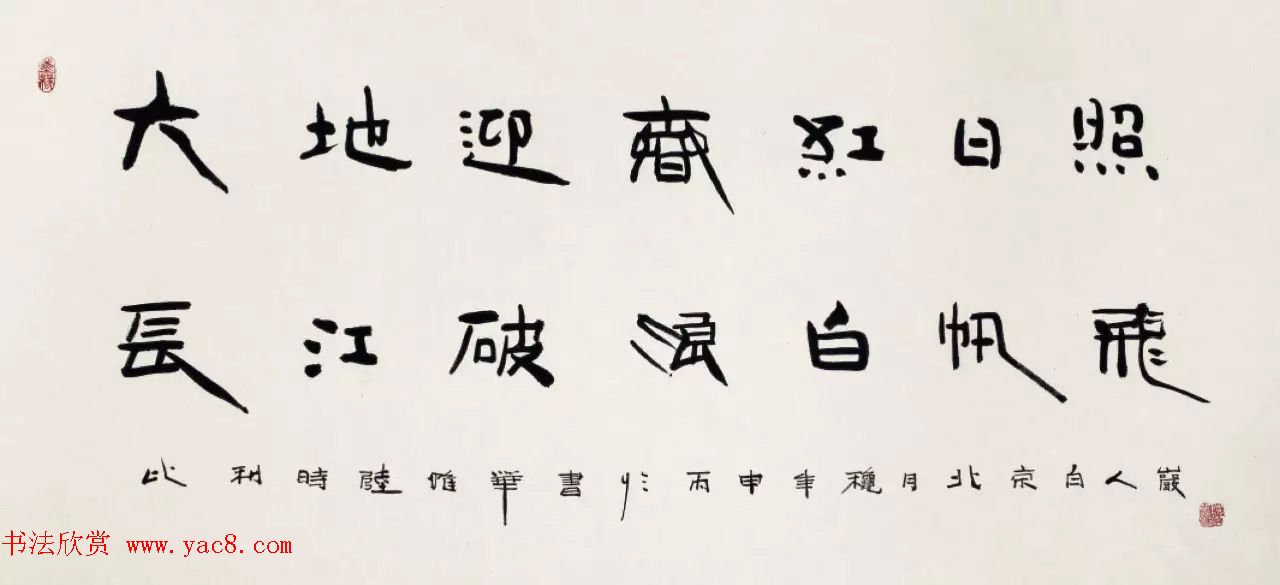 大地迎春紅日照
長江破浪白帆飛
比利時陸惟華書於丙申年穐月北京白人巖
书法欣赏 www.yac8.com